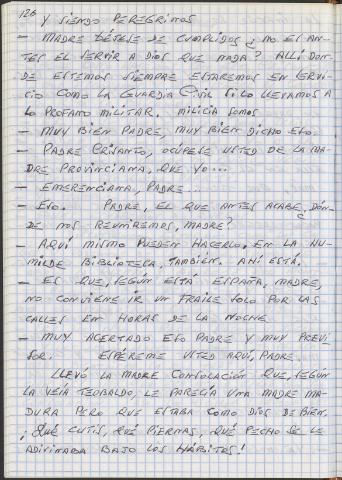 126
Y SIENDO PEREGRINOS
— MADRE DÉJESE DE CUMPLIDOS ¿ NO ES AN-
TES EL SERVIR A DIOS QUE NADA? ALLÍ DON-
DE ESTEMOS SIEMPRE ESTAREMOS EN SERVI-
CIO COMO LA GUARDIA CIVIL SI LO LLEVAMOS A
LO PROFANO MILITAR. MILICIA SOMOS
— MUY BIEN PADRE, MUY BIEN DICHO ESO.
— PADRE CRISANTO, OCÚPESE USTED DE LA MA-
DRE PROVINCIANA, QUE YO...
— EMERENCIANA, PADRE...
— ESO. PADRE, EL QUE ANTES ACABE, ¿DÓN-
DE NOS REUNIREMOS, MADRE?
— AQUÍ MISMO PUEDEN HACERLO. EN LA HU-
MILDE BIBLIOTECA, TAMBIÉN. AHÍ ESTÁ.
— ES QUE, SEGÚN ESTÁ ESPAÑA, MADRE,
NO CONVIENE IR UN FRAILE SOLO POR LAS
CALLES EN HORAS DE LA NOCHE
— MUY ACERTADO ESO PADRE Y MUY PREVI-
SOR. ESPÉREME USTED AQUÍ, PADRE.
LLEVÓ LA MADRE CONSOLACIÓN QUE, SEGÚN
LA VEÍA TEOBALDO, LE PARECÍA UNA MADRE MA-
DURA PERO QUE ESTABA COMO DIOS DE BIEN.
¡QUÉ CUTIS, QUÉ PIERNAS, QUÉ PECHO SE LE
ADIVINABA BAJO LOS HÁBITOS!